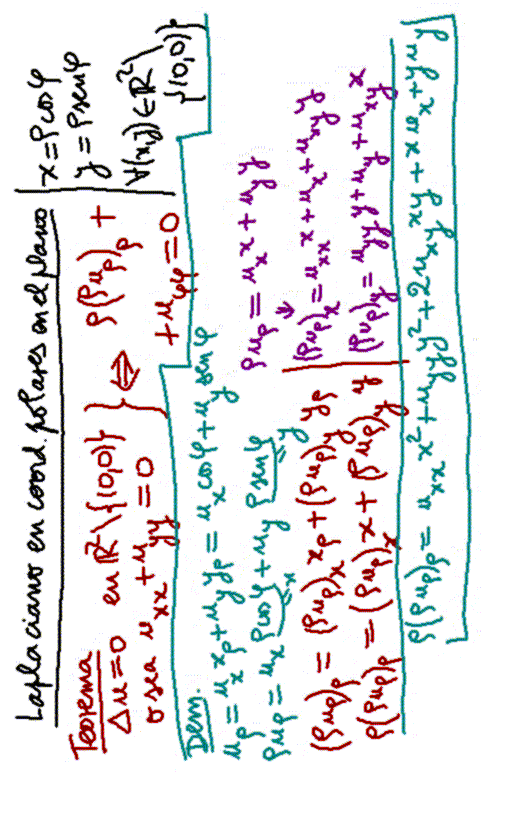 Laplaciano en coord. polares en el plano
x = ρcosφ
y = ρsenφ
∀(x,y)∈ℝ²\
{(0,0)}
Teorema
Δu=0 en ℝ²\{(0,0)}
o sea u_xx + u_yy = 0
⇔
ρ(ρu_ρ)_ρ +
+ u_φφ = 0
Dem.
u_ρ = u_x x_ρ + u_y y_ρ = u_x cosφ + u_y senφ
ρu_ρ = u_x ρcosφ + u_y ρsenφ
=x =y
ρu_ρ = u_x x + u_y y
↓
(ρu_ρ)_x = u_xx x + u_x + u_xy y
(ρu_ρ)_y = u_yy y + u_y + u_xy x
(ρu_ρ)_ρ = (ρu_ρ)_x x_ρ + (ρu_ρ)_y y_ρ
ρ(ρu_ρ)_ρ = (ρu_ρ)_x x + (ρu_ρ)_y y
ρ(ρu_ρ)_ρ = u_xx x² + u_yy y² + 2u_xy xy + x u_x + y u_y